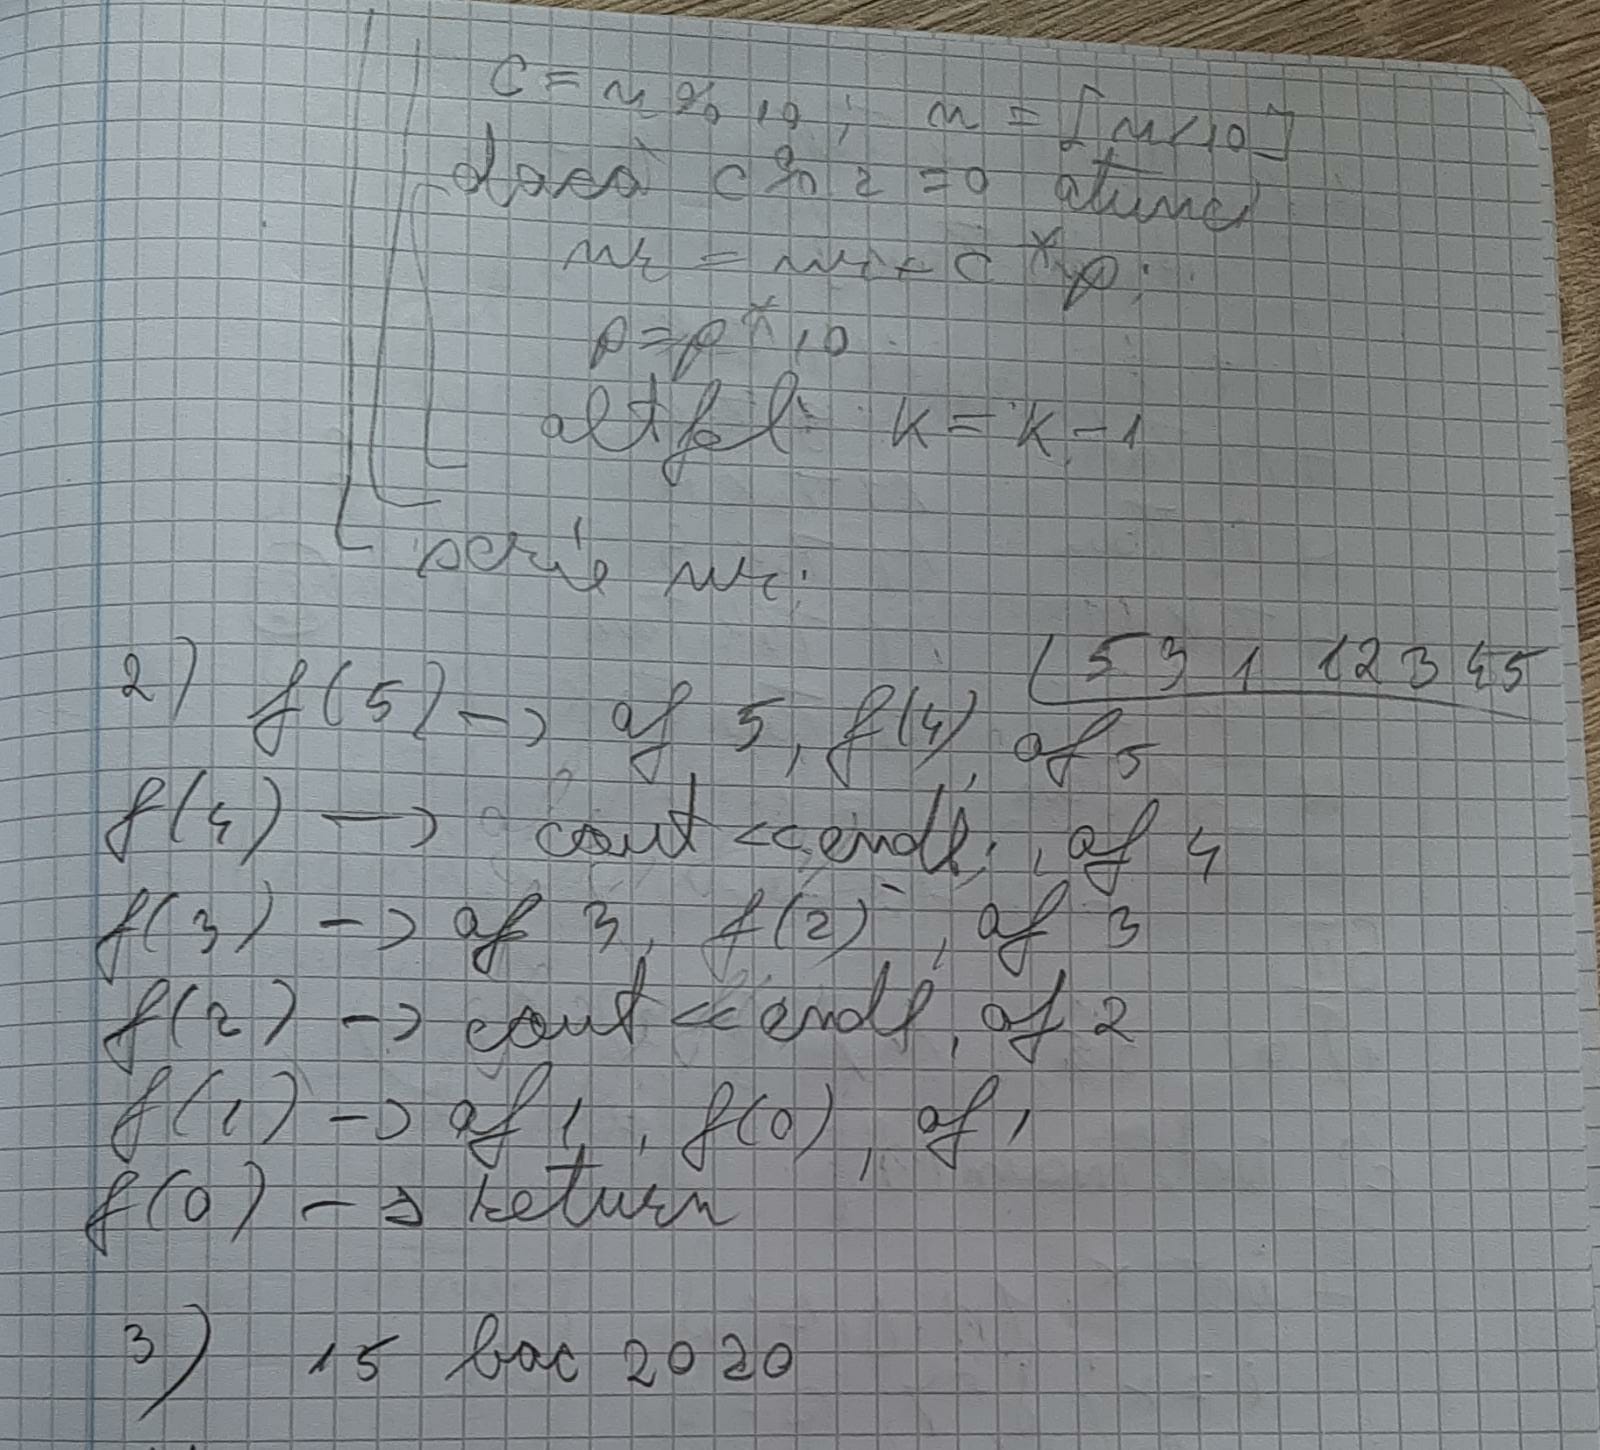 c = n % 10 ; n = [n/10]
dacă c % 2 = 0 atunci
nr = nr + c * p ;
p = p * 10
altfel k = k - 1
scrie nr ;
5 3 1 1 2 3 4 5
2) f(5) -> af 5, f(4), af 5
f(4) -> cout << endl; , af 4
f(3) -> af 3, f(2), af 3
f(2) -> cout << endl, af 2
f(1) -> af 1, f(0), af 1
f(0) -> return
3) 15 bac 2020